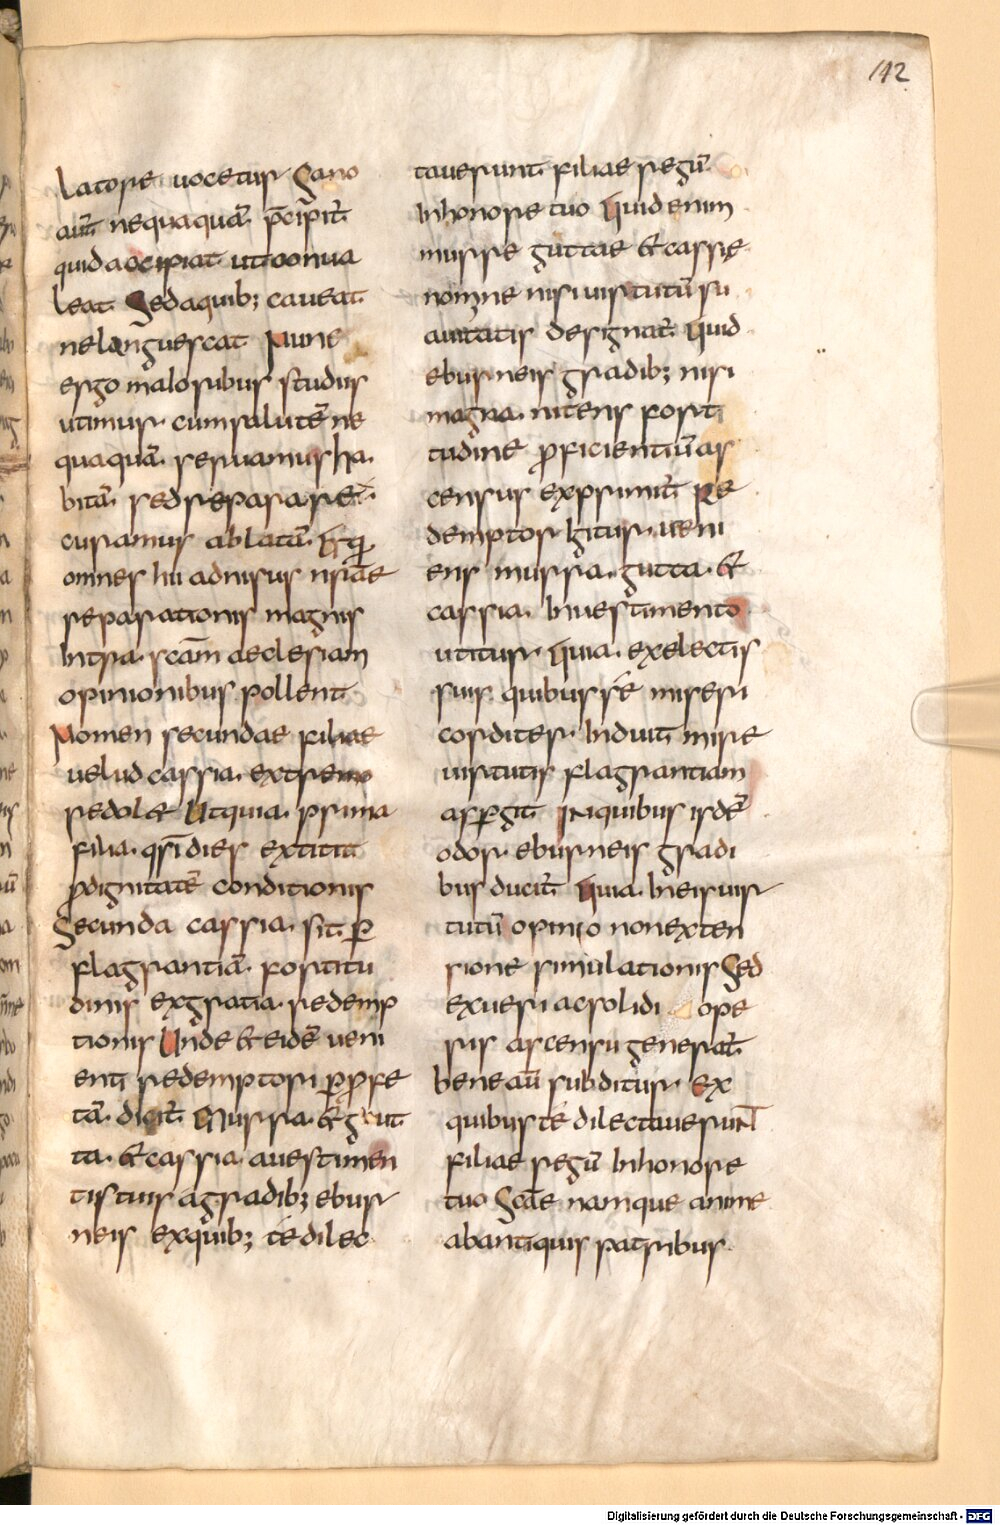 112
latore uocetur Sano
aūt nequaquā p̄cipit̄
quid accipiat ut conua
leat Sed a quib; caueat
ne languescat Nunc
ergo maloribus studiis
utimur cum salutē ne
quaquā seruamus ha
bitā sed separare
curamus ablatā
omnes hii ad nisus nr̄ae
reparationis magnis
Intra scām aeclesiam
opinionibus pollent
Nomen secundae filiae
uelud cassia extremo
redol& Ut quia prima
filia q̄si dies extitit
p dignitatē conditionis
Secunda cassia sit p
flagrantiā fortitu
dinis ex gratia redemp
tionis Unde & eidē ueni
enti redemptori p ppfe
tā dicit̄ Murra & gut
ta & cassia a uestimen
tis tuis a gradib; ebur
neis ex quib; te dilec
tauerunt filiae regū
In honore tuo Quid enim
murre guttae & cassię
nomine nisi uirtutū su
auitatis designat̄ Quid
eburneis gradib; nisi
magna nitens fortit
tudine proficientiū as
census exprimit̄ Re
demptor Igitur ueni
ens murra gutta &
cassia In uestimento
utitur Quia ex electis
suis quibus sé miseri
corditer Induit mire
uirtutis flagrantiam
aspergit In quibus isdē
odor eburneis gradi
bus ducit̄ Quia In eis uir
tutū opinio non exten
sione simulationis Sed
ex ueri ac solidi ope
ris ascensu generat̄
bene aū subditur Ex
quibus té dilectauerunt
filiae regū In honore
tuo Scāe namque anime
ab antiquis patribus
Digitalisierung gefördert durch die Deutsche Forschungsgemeinschaft - DFG